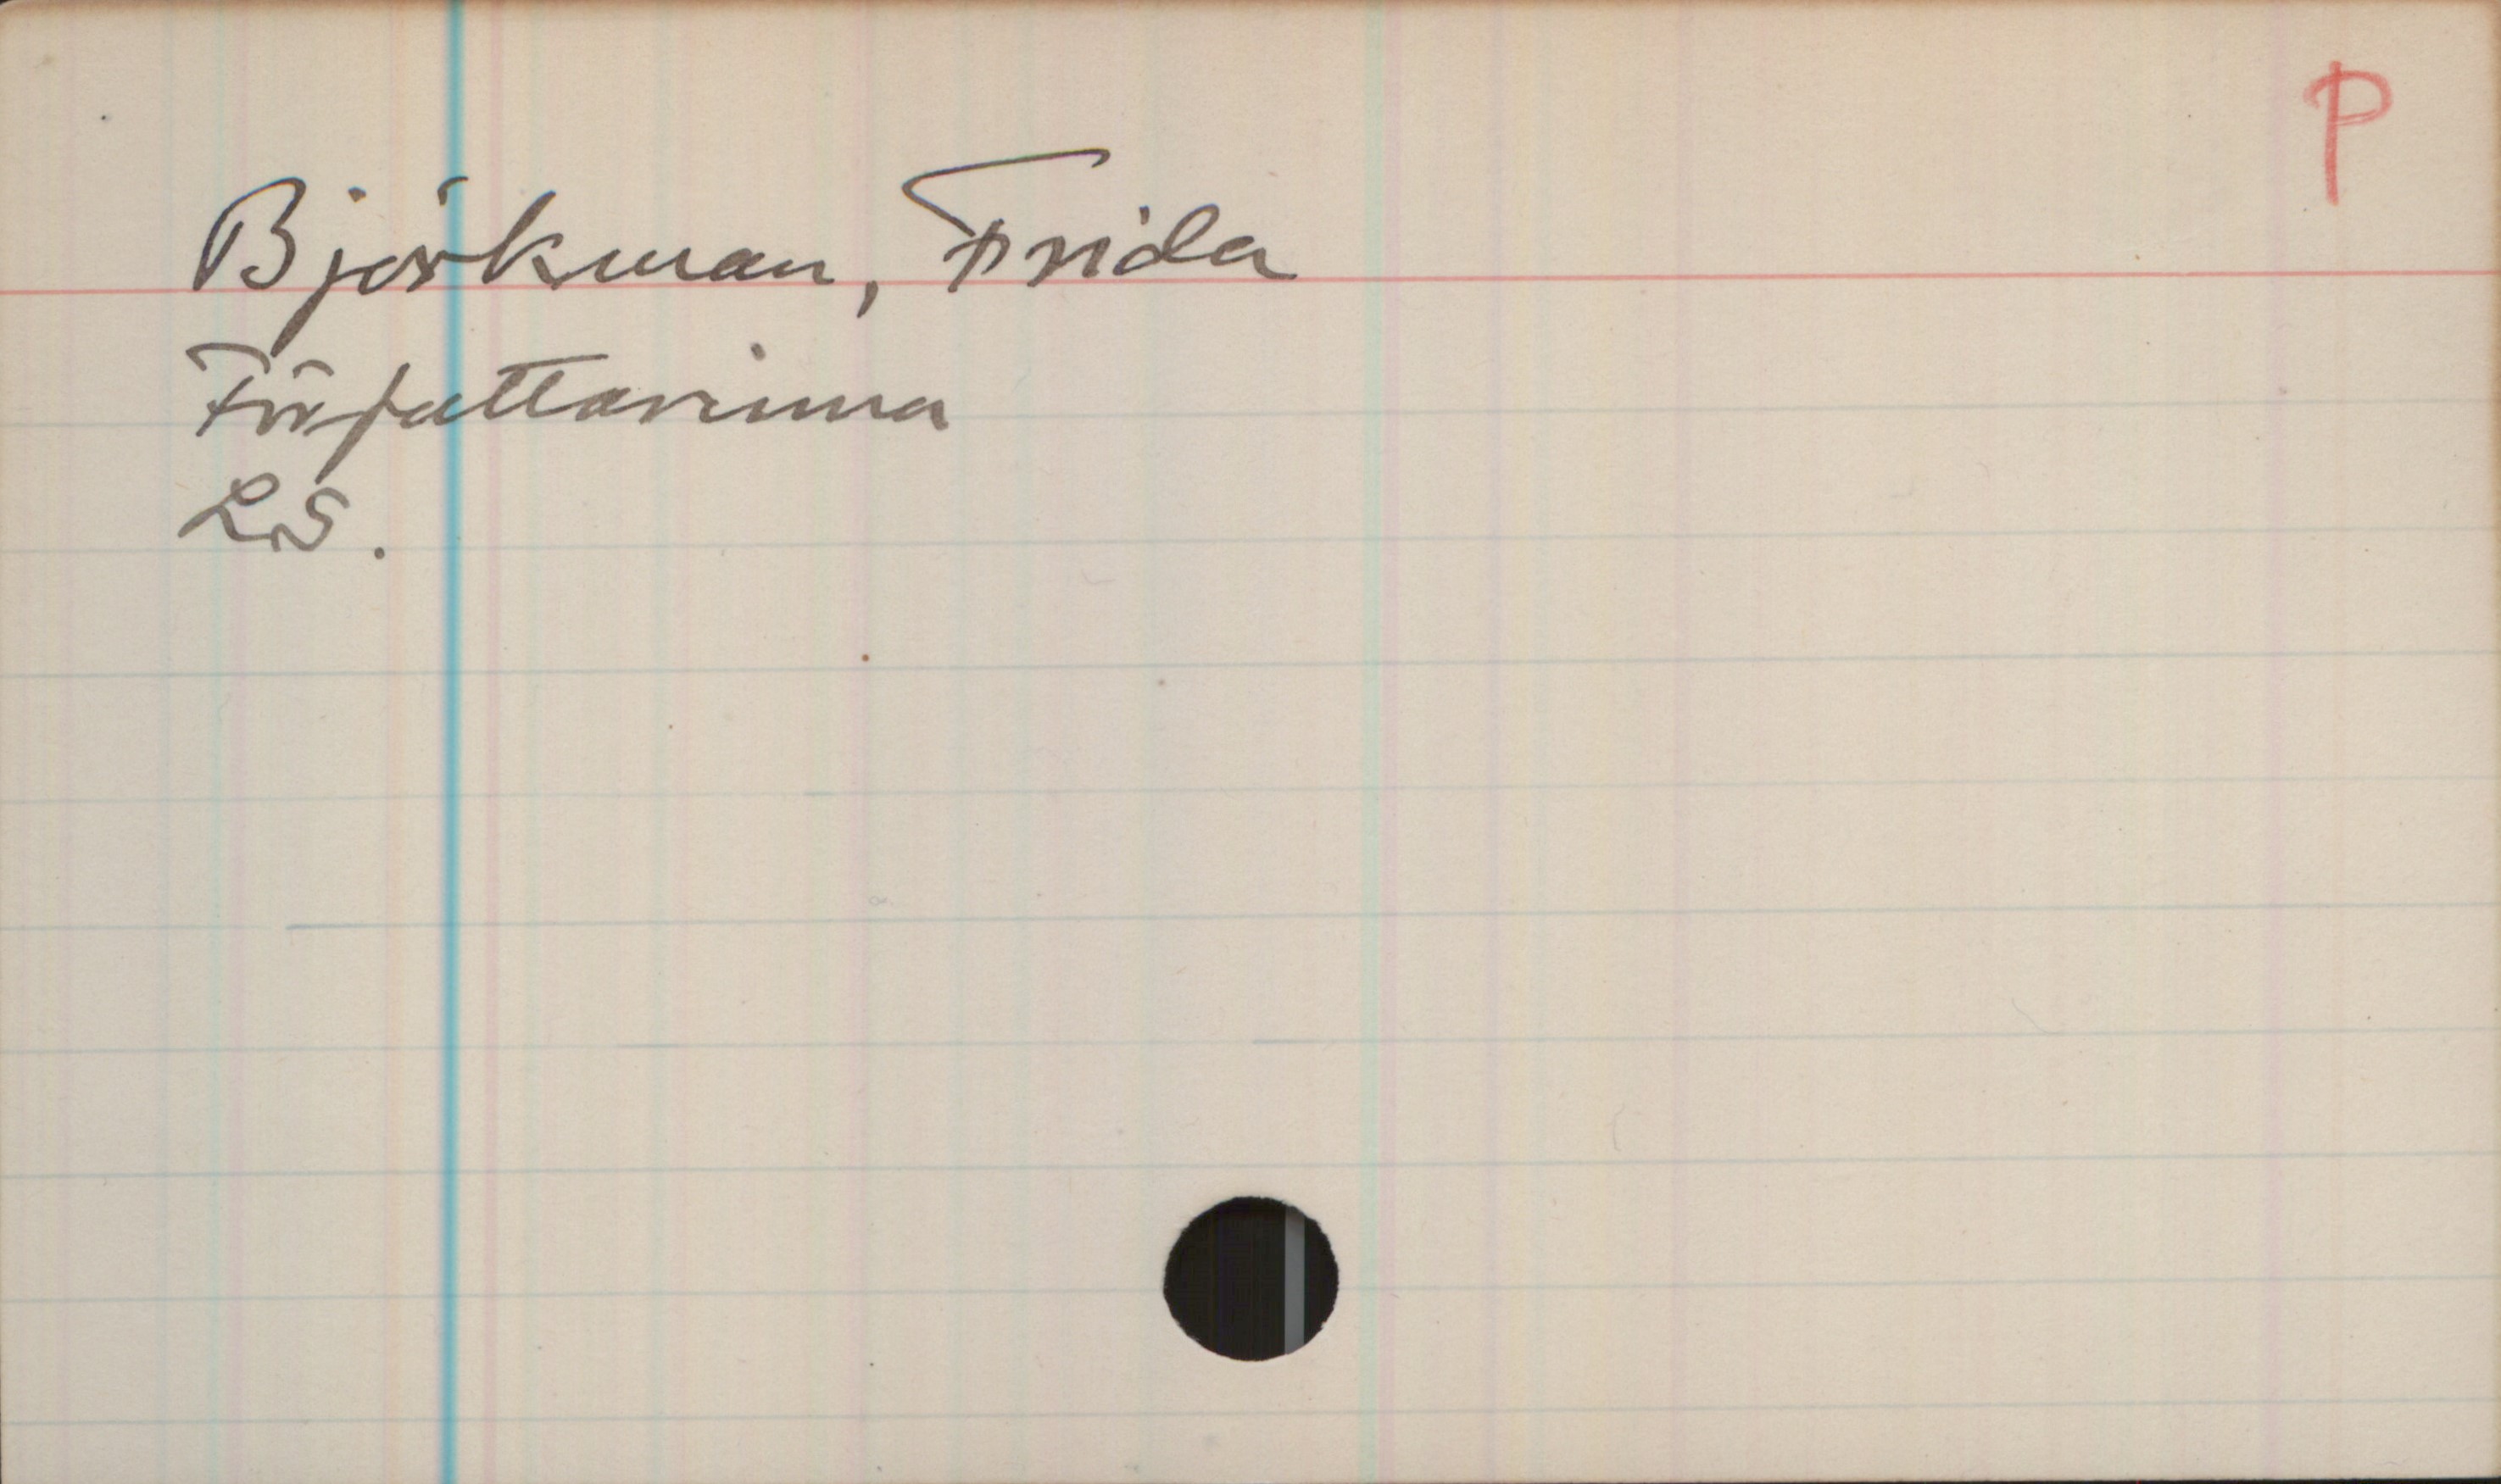 P
Björkman, Frida
Författarinna
LS.